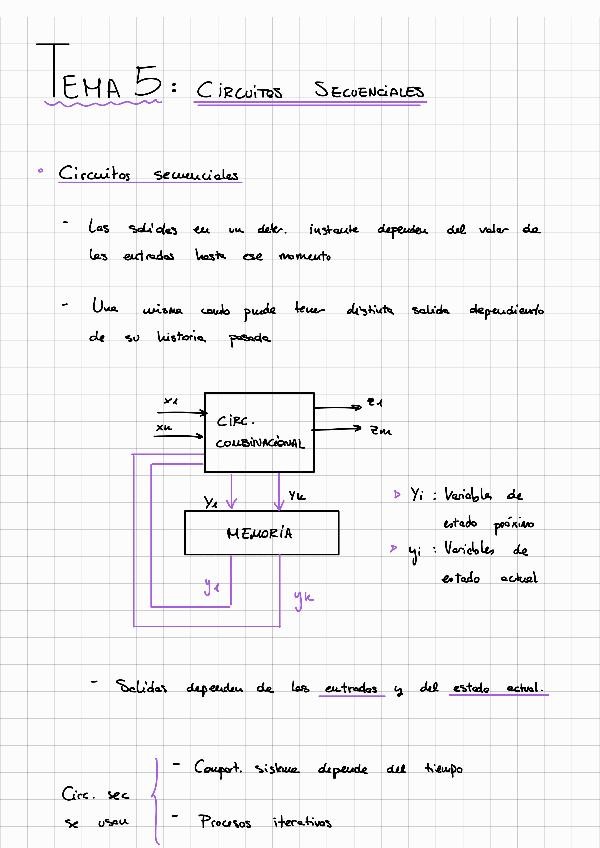 TEMA 5: CIRCUITOS SECUENCIALES
Circuitos secuenciales
- Las salidas en un deter. instante dependen del valor de
las entradas hasta ese momento
- Una misma comb puede tener distinta salida dependiendo
de su historia pasada
x1
xn
CIRC.
COMBINACIONAL
z1
zm
Y1
Yk
MEMORÍA
y1
yk
Yi : Variables de
estado próximo
yi : Variables de
estado actual
- Salidas dependen de las entradas y del estado actual.
Circ. sec
se usan
- Comport. sistema depende del tiempo
- Procesos iterativos